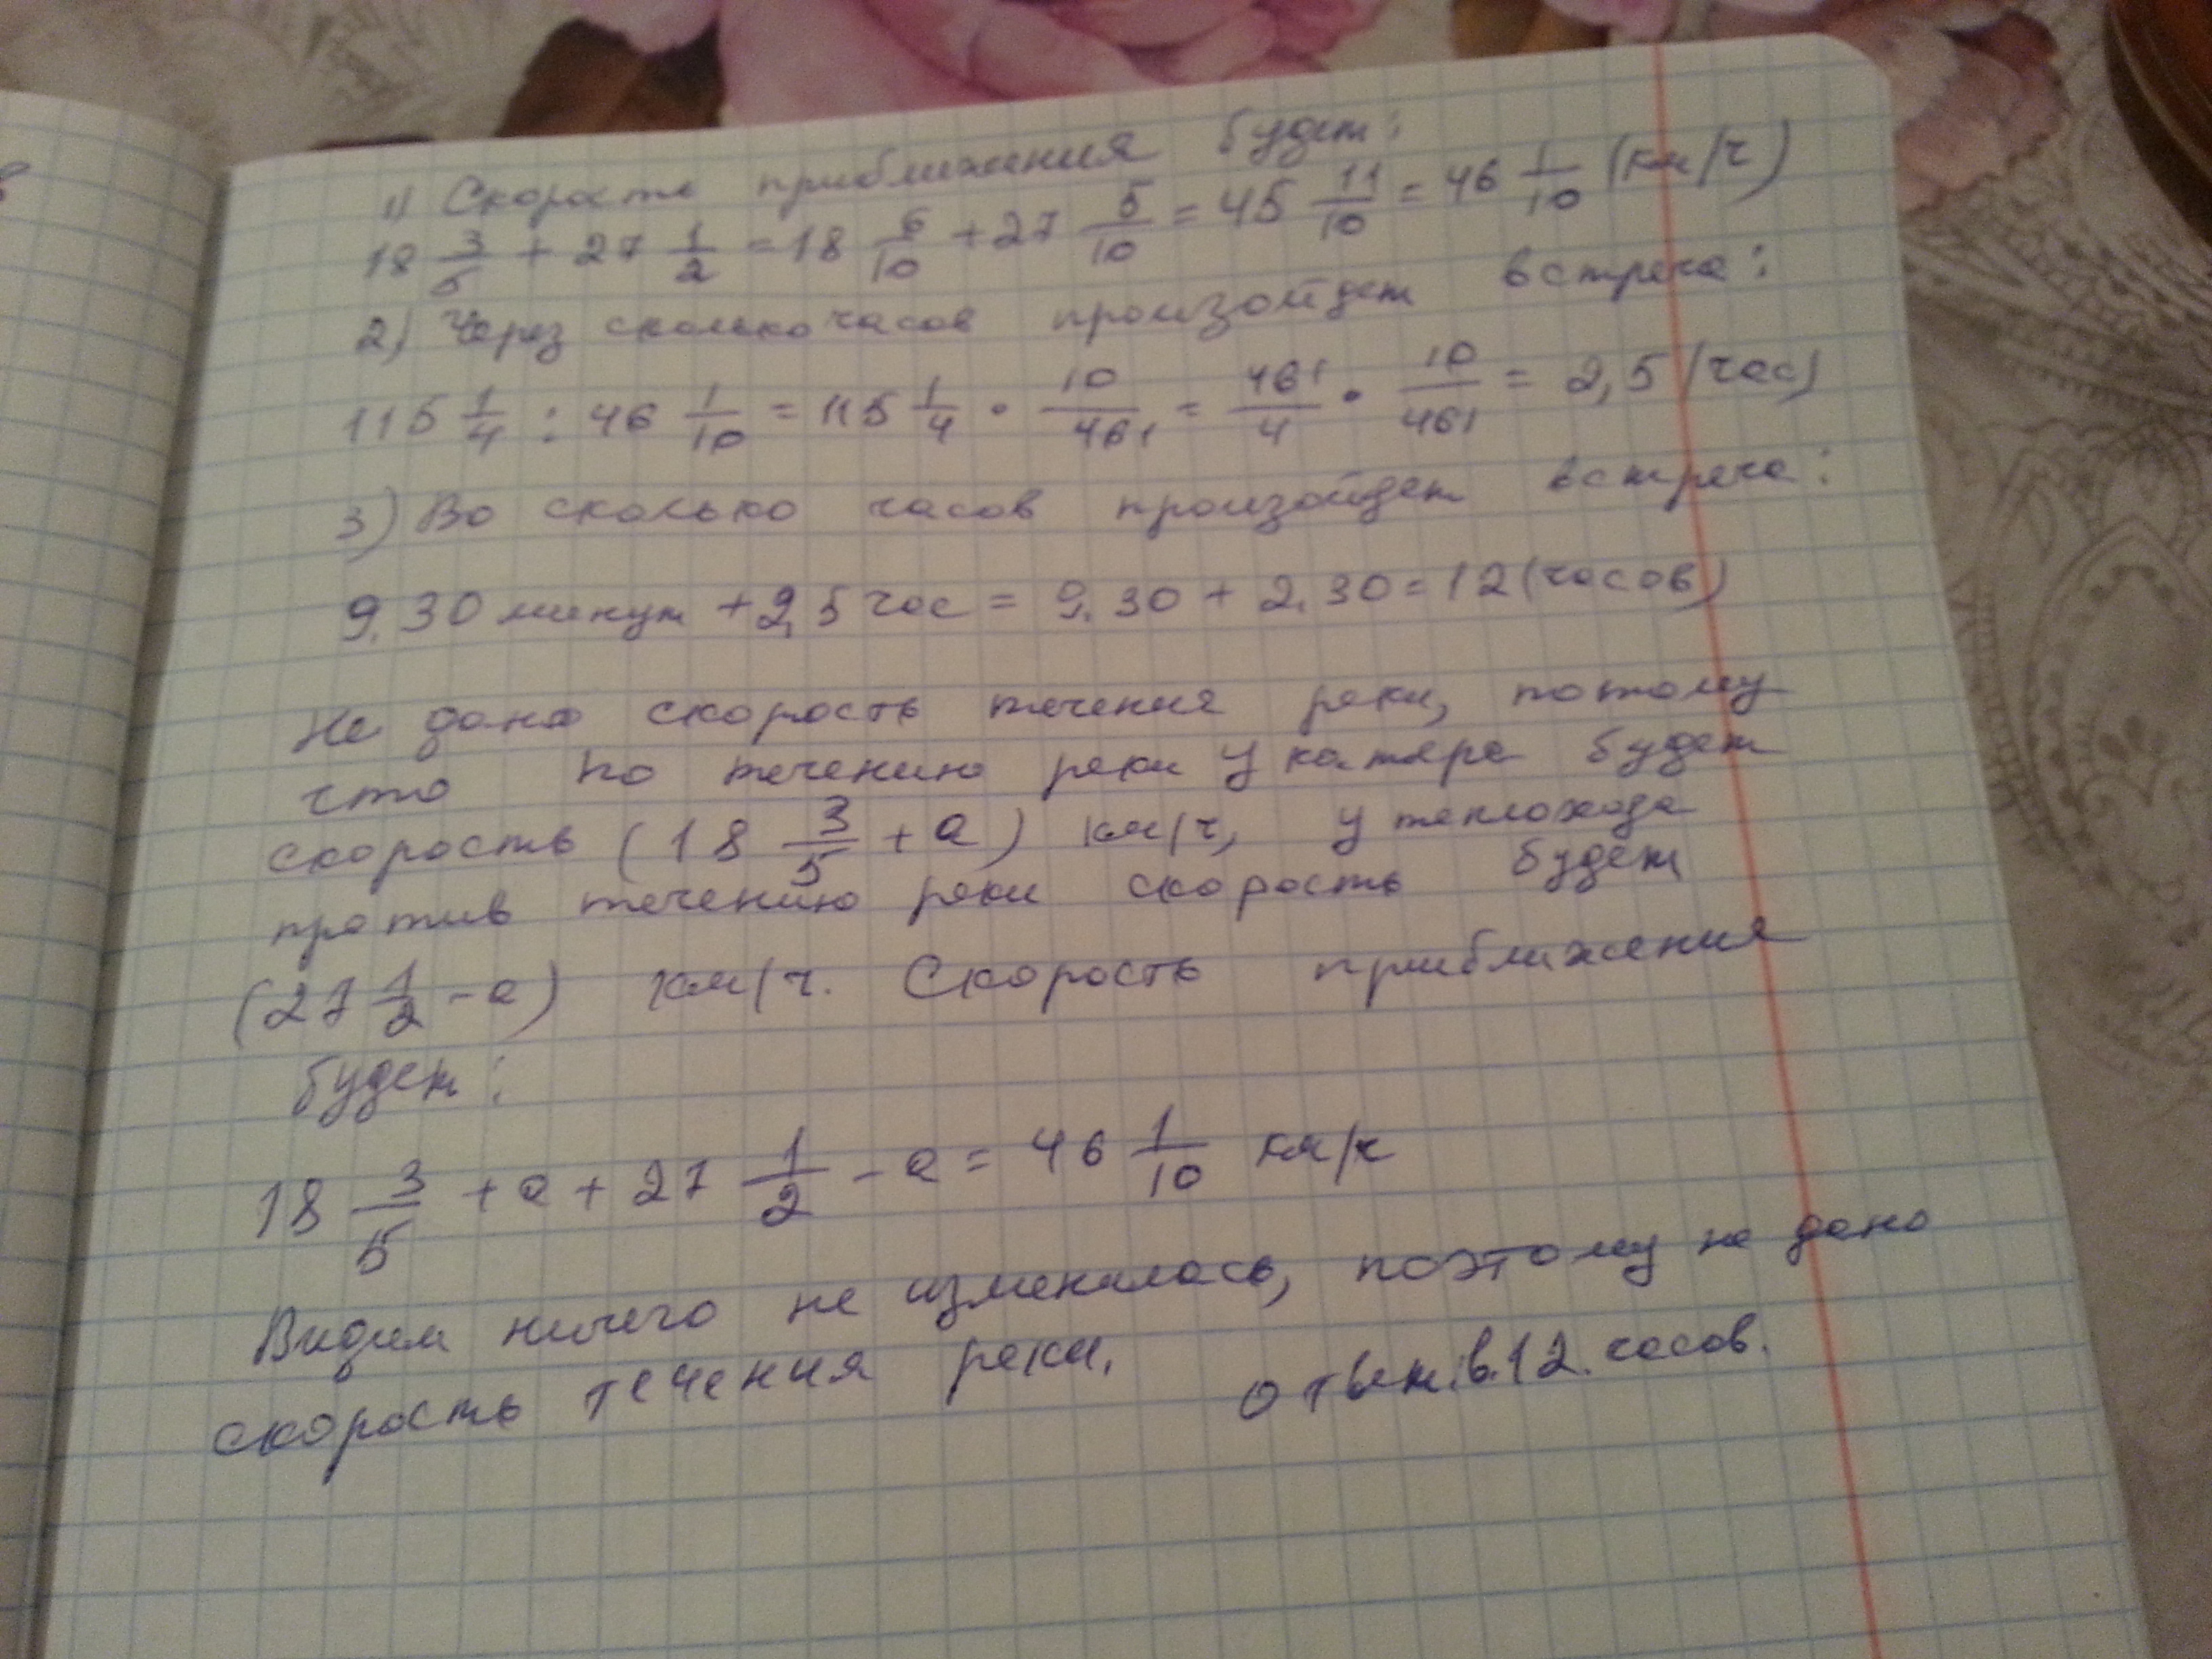 1) Скорость приближения будет:
18 3/5 + 27 1/2 = 18 6/10 + 27 5/10 = 45 11/10 = 46 1/10 (км/ч)
2) Через сколько часов произойдет встреча:
115 1/4 : 46 1/10 = 115 1/4 · 10/461 = 461/4 · 10/461 = 2,5 (час)
3) Во сколько часов произойдет встреча:
9.30 минут + 2,5 час = 9.30 + 2.30 = 12 (часов)
Не дано скорость течения реки, потому
что по течению реки у катера будет
скорость (18 3/5 + а) км/ч, у теплохода
против течению реки скорость будет
(27 1/2 - а) км/ч. Скорость приближения
будет:
18 3/5 + а + 27 1/2 - а = 46 1/10 км/ч
Видим ничего не изменилась, поэтому не дано
скорость течения реки.
Ответ: в 12 часов.